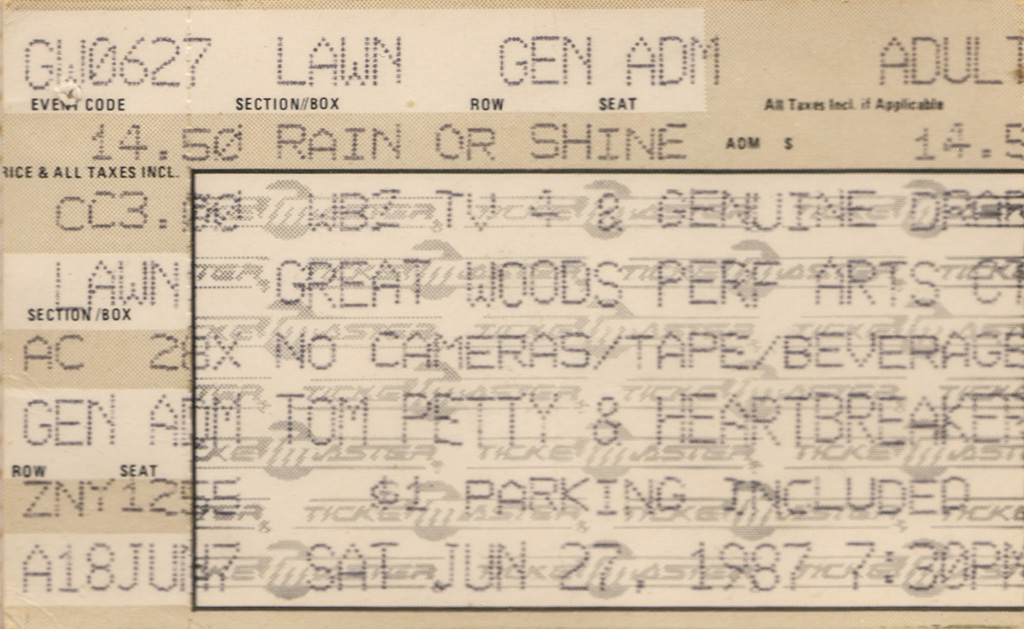 GW0627 LAWN GEN ADM ADULT
EVENT CODE SECTION//BOX ROW SEAT All Taxes Incl. if Applicable
14.50 RAIN OR SHINE ADM $ 14.5
RICE & ALL TAXES INCL.
CC3.00 WBZ TV 4 & GENUINE DRAF
LAWN GREAT WOODS PERF ARTS CT
SECTION/BOX
AC 28X NO CAMERAS/TAPE/BEVERAGE
GEN ADM TOM PETTY & HEARTBREAKER
ROW SEAT
$1 PARKING INCLUDED
A18JUN7 SAT JUN 27, 1987 7:30PM